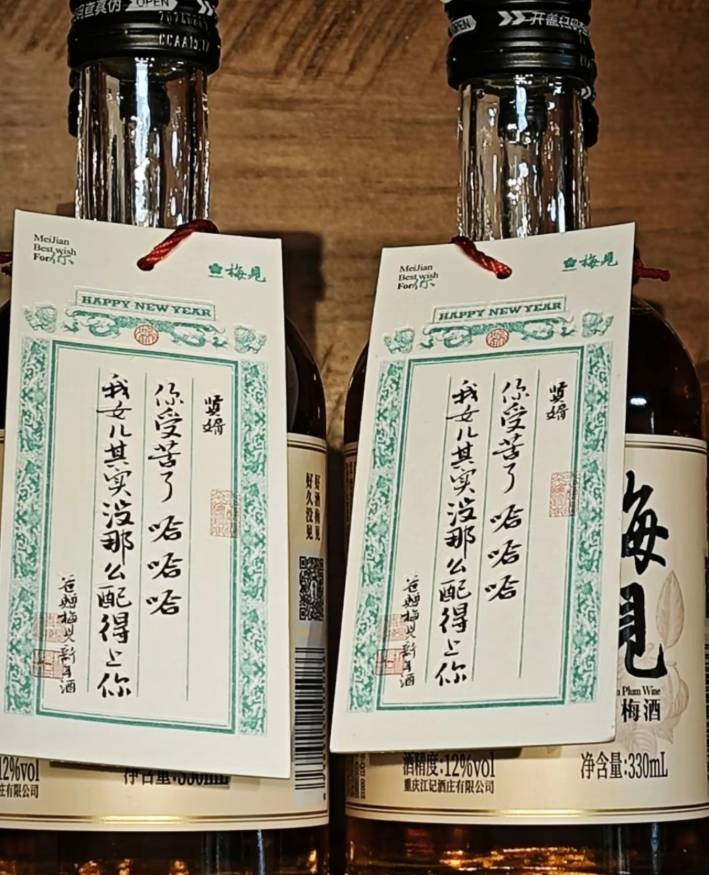 OPEN
CCAA15.17
MeiJian
Best wish
For你
梅見
HAPPY NEW YEAR
贤婿
你受苦了 哈哈哈
我女儿其实没那么配得上你
爸赠梅见新年酒
好酒梅见
好久没见
12%vol
净含量:330mL
庄有限公司
OPEN
MeiJian
Best wish
For你
梅見
HAPPY NEW YEAR
贤婿
你受苦了 哈哈哈
我女儿其实没那么配得上你
爸赠梅见新年酒
梅見
Plum Wine
梅酒
酒精度:12%vol
净含量:330mL
重庆江记酒庄有限公司